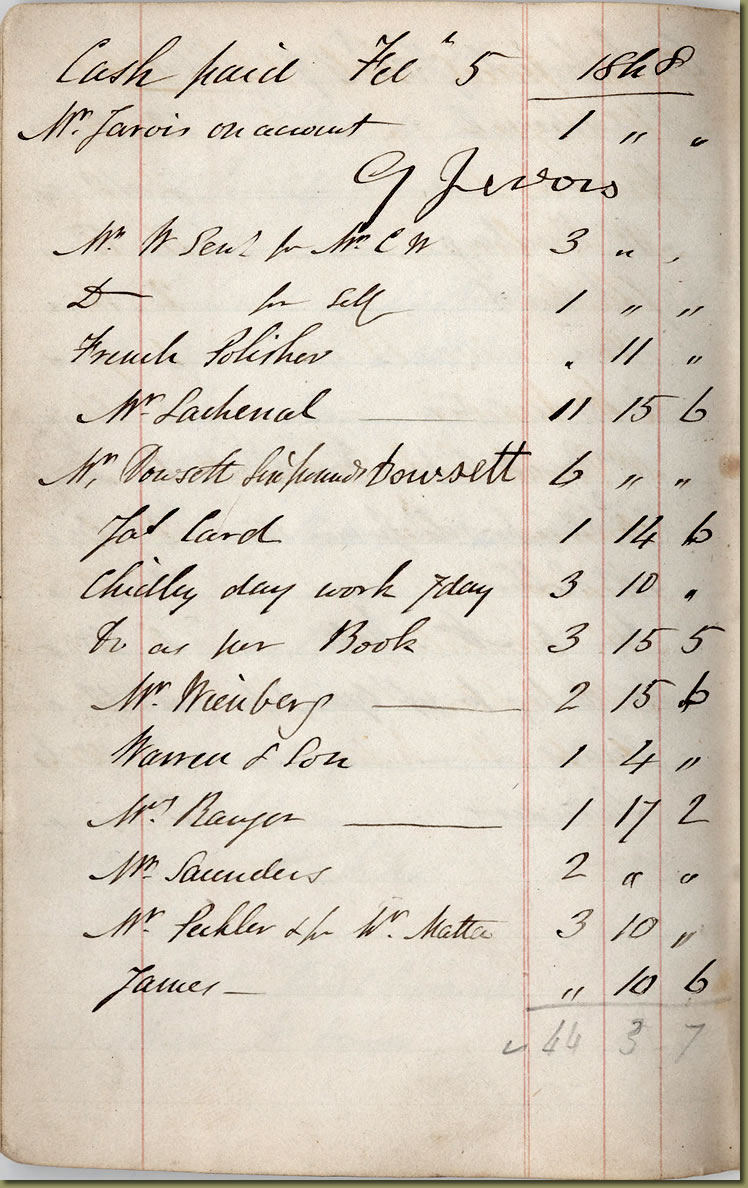 Cash paid Feb 5th 1848
Mr. Jarvis on account 1 " "
G Jervois
Mr W for Mr C W 3 " "
Do for Self 1 " "
French Polisher . 11 "
Mr Lachenal 11 15 6
Mr. Dowsett Six pounds Dowsett 6 " "
Jas Card 1 14 6
Chidley day work 7 day 3 10 "
Do as per Book 3 15 5
Mr. Wienberg 2 15 6
Warren & Son 1 4 "
Mrs Ranger 1 17 2
Mr. Saunders 2 " "
Mr. & for 3 10 "
James " 10 6
44 3 7